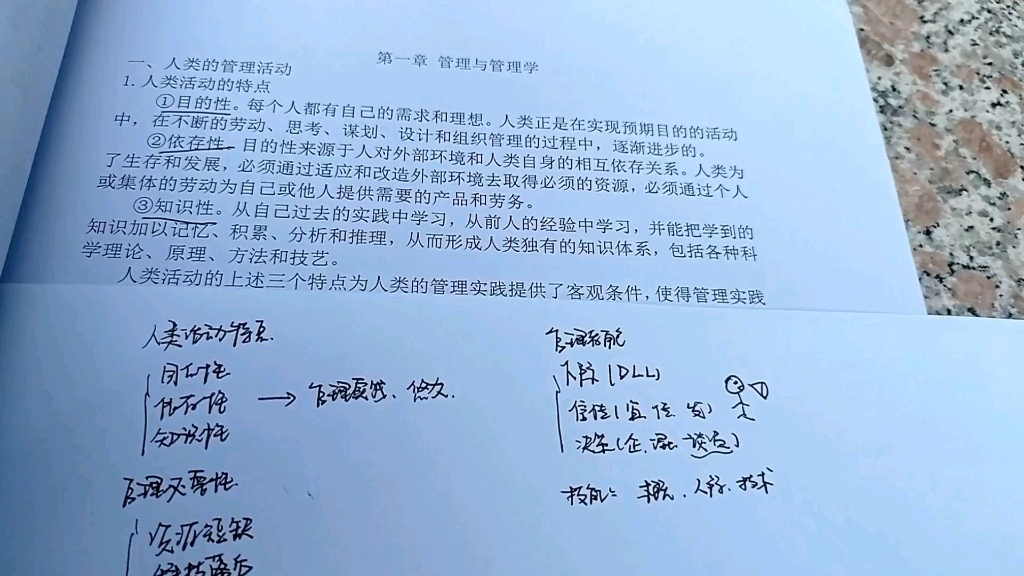 第一章 管理与管理学
一、人类的管理活动
1. 人类活动的特点
①目的性。每个人都有自己的需求和理想。人类正是在实现预期目的的活动
中，在不断的劳动、思考、谋划、设计和组织管理的过程中，逐渐进步的。
②依存性。目的性来源于人对外部环境和人类自身的相互依存关系。人类为
了生存和发展，必须通过适应和改造外部环境去取得必须的资源，必须通过个人
或集体的劳动为自己或他人提供需要的产品和劳务。
③知识性。从自己过去的实践中学习，从前人的经验中学习，并能把学到的
知识加以记忆、积累、分析和推理，从而形成人类独有的知识体系，包括各种科
学理论、原理、方法和技艺。
人类活动的上述三个特点为人类的管理实践提供了客观条件，使得管理实践
人类活动特点
目的性
依存性
知识性
→ 管理实践、悠久.
管理必要性
资源短缺
科技落后
管理
人际(DLL)
信息(
决策(企、
技能: 概念、人际、技术